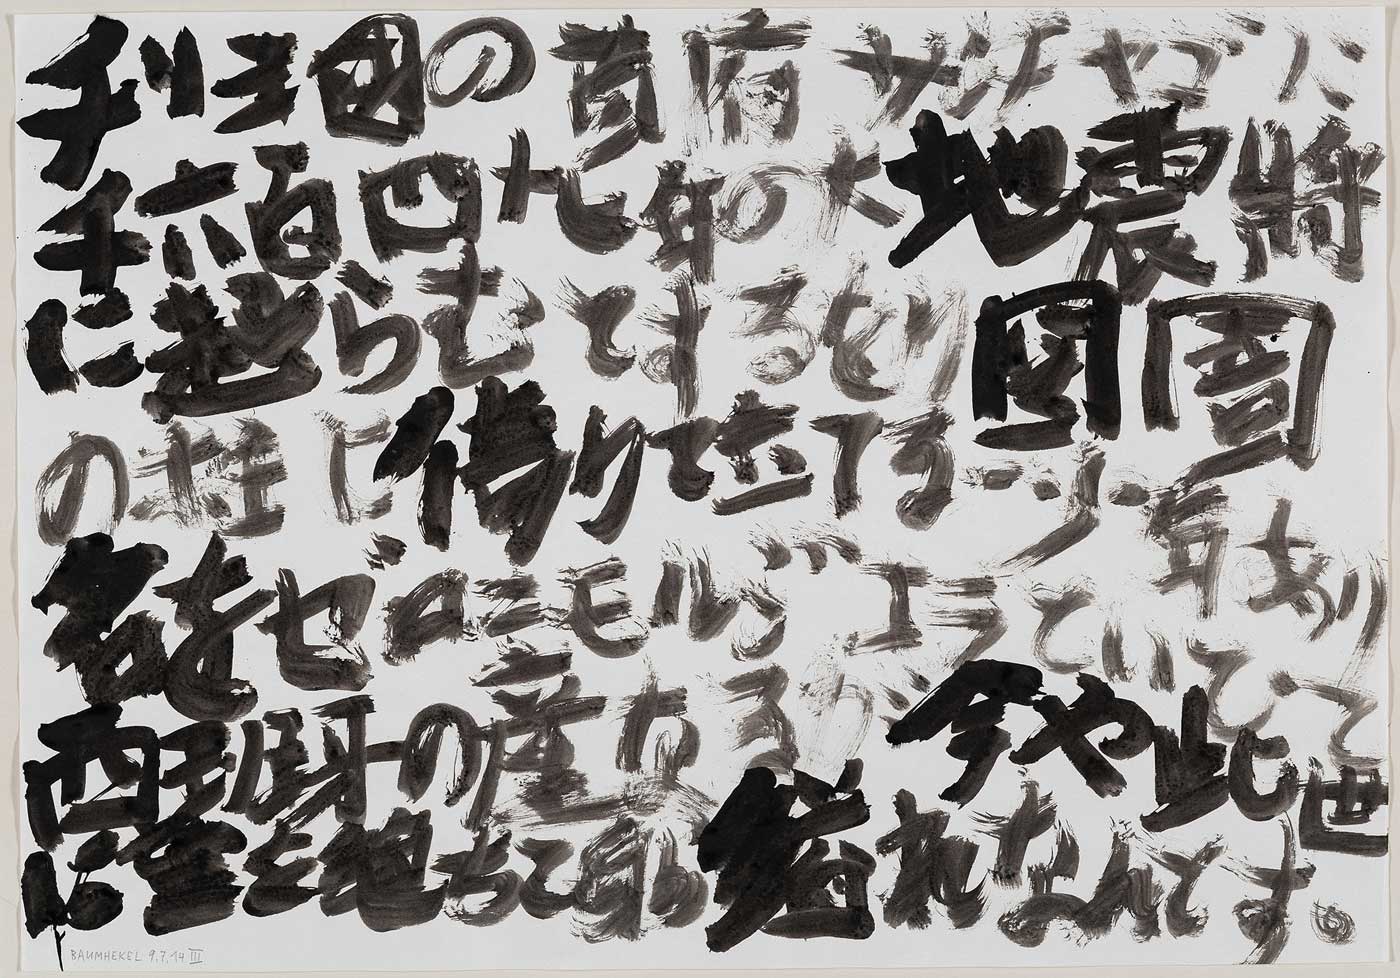 チリ王国の首府サンチヤゴに
千六百四十七年の大地震将
に起らむとするをり囹圄
の柱に倚りて立てる一少年あり
名をゼロニモ・ルジエラといひて
西班牙の産なるが今や此世
に望を絶ちて自ら縊れなんとす。
BAUMHEKEL 9.7.14 III